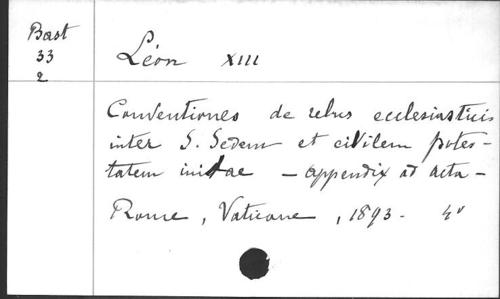 Bast
33
2
Léon XIII
Conventiones de rebus ecclesiasticis
inter S. Sedem et civilem potes-
tatem initae - appendix ad acta -
Rome, Vaticane, 1893 - 4°